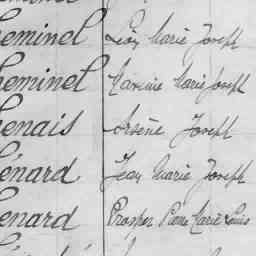 heminel Léon Marie Joseph
heminel Maximin Marie Joseph
henais Arsène Joseph
hénard Jean Marie Joseph
henard Prosper Pierre Marie Louis